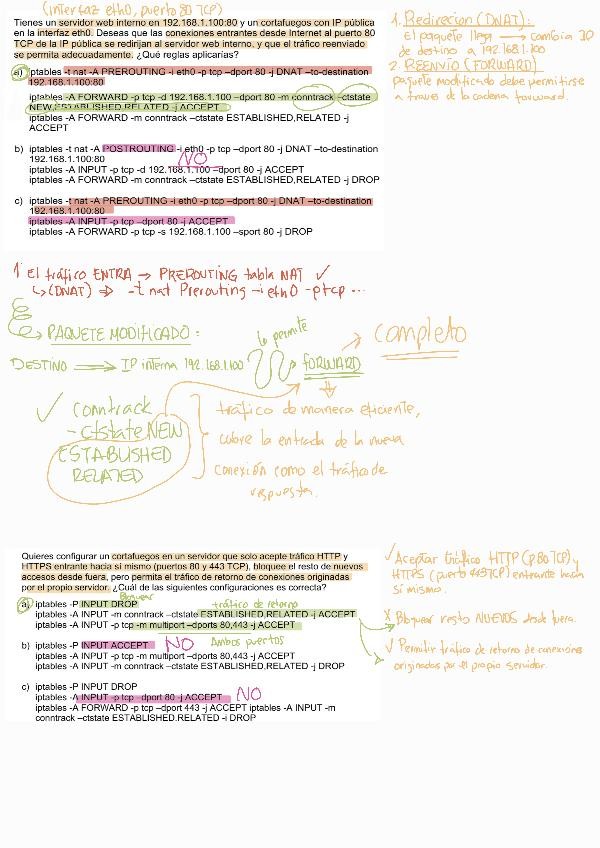 (interfaz eth0, puerto 80 TCP)
Tienes un servidor web interno en 192.168.1.100:80 y un cortafuegos con IP pública
en la interfaz eth0. Deseas que las conexiones entrantes desde Internet al puerto 80
TCP de la IP pública se redirijan al servidor web interno, y que el tráfico reenviado
se permita adecuadamente. ¿Qué reglas aplicarías?
a) iptables -t nat -A PREROUTING -i eth0 -p tcp –dport 80 -j DNAT –to-destination
192.168.1.100:80
iptables -A FORWARD -p tcp -d 192.168.1.100 –dport 80 -m conntrack –ctstate
NEW,ESTABLISHED,RELATED -j ACCEPT
iptables -A FORWARD -m conntrack –ctstate ESTABLISHED,RELATED -j
ACCEPT
b) iptables -t nat -A POSTROUTING -i eth0 -p tcp –dport 80 -j DNAT –to-destination
192.168.1.100:80
NO
iptables -A INPUT -p tcp -d 192.168.1.100 –dport 80 -j ACCEPT
iptables -A FORWARD -m conntrack –ctstate ESTABLISHED,RELATED -j DROP
c) iptables -t nat -A PREROUTING -i eth0 -p tcp –dport 80 -j DNAT –to-destination
192.168.1.100:80
iptables -A INPUT -p tcp –dport 80 -j ACCEPT
iptables -A FORWARD -p tcp -s 192.168.1.100 –sport 80 -j DROP
1. Redirección (DNAT):
El paquete llega → cambia IP
de destino a 192.168.1.100
2. REENVÍO (FORWARD)
paquete modificado debe permitirse
a través de la cadena forward.
1º El tráfico ENTRA → PREROUTING tabla NAT ✓
↳ (DNAT) ⇒ -t nat Prerouting -i eth0 -p tcp ...
PAQUETE MODIFICADO:
lo permite
completo
DESTINO ⟹ IP interna 192.168.1.100
FORWARD
✓ conntrack
- ctstate NEW
ESTABLISHED
RELATED
tráfico de manera eficiente,
cubre la entrada de la nueva
conexión como el tráfico de
respuesta.
Quieres configurar un cortafuegos en un servidor que solo acepte tráfico HTTP y
HTTPS entrante hacia sí mismo (puertos 80 y 443 TCP), bloquee el resto de nuevos
accesos desde fuera, pero permita el tráfico de retorno de conexiones originadas
por el propio servidor. ¿Cuál de las siguientes configuraciones es correcta?
Bloquear
a) iptables -P INPUT DROP
tráfico de retorno
iptables -A INPUT -m conntrack –ctstate ESTABLISHED,RELATED -j ACCEPT
iptables -A INPUT -p tcp -m multiport –dports 80,443 -j ACCEPT
Ambos puertos
b) iptables -P INPUT ACCEPT NO
iptables -A INPUT -p tcp -m multiport –dports 80,443 -j ACCEPT
iptables -A INPUT -m conntrack –ctstate ESTABLISHED,RELATED -j DROP
c) iptables -P INPUT DROP
iptables -A INPUT -p tcp –dport 80 -j ACCEPT NO
iptables -A FORWARD -p tcp –dport 443 -j ACCEPT iptables -A INPUT -m
conntrack –ctstate ESTABLISHED,RELATED -j DROP
✓ Aceptar tráfico HTTP (p80 TCP) y
HTTPS (puerto 443 TCP) entrante hacia
sí mismo.
X Bloquear resto NUEVOS desde fuera.
✓ Permitir tráfico de retorno de conexiones
originadas por el propio servidor.